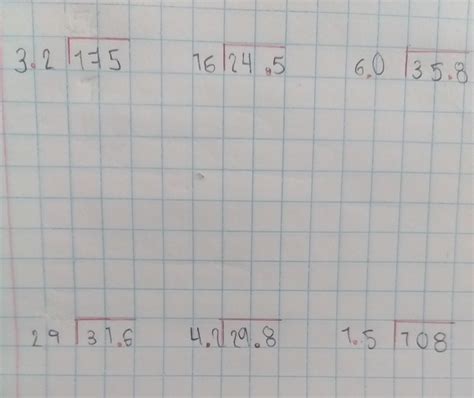 3.2 175 16 24.5 6.0 35.8
29 31.6 4.2 29.8 1.5 108